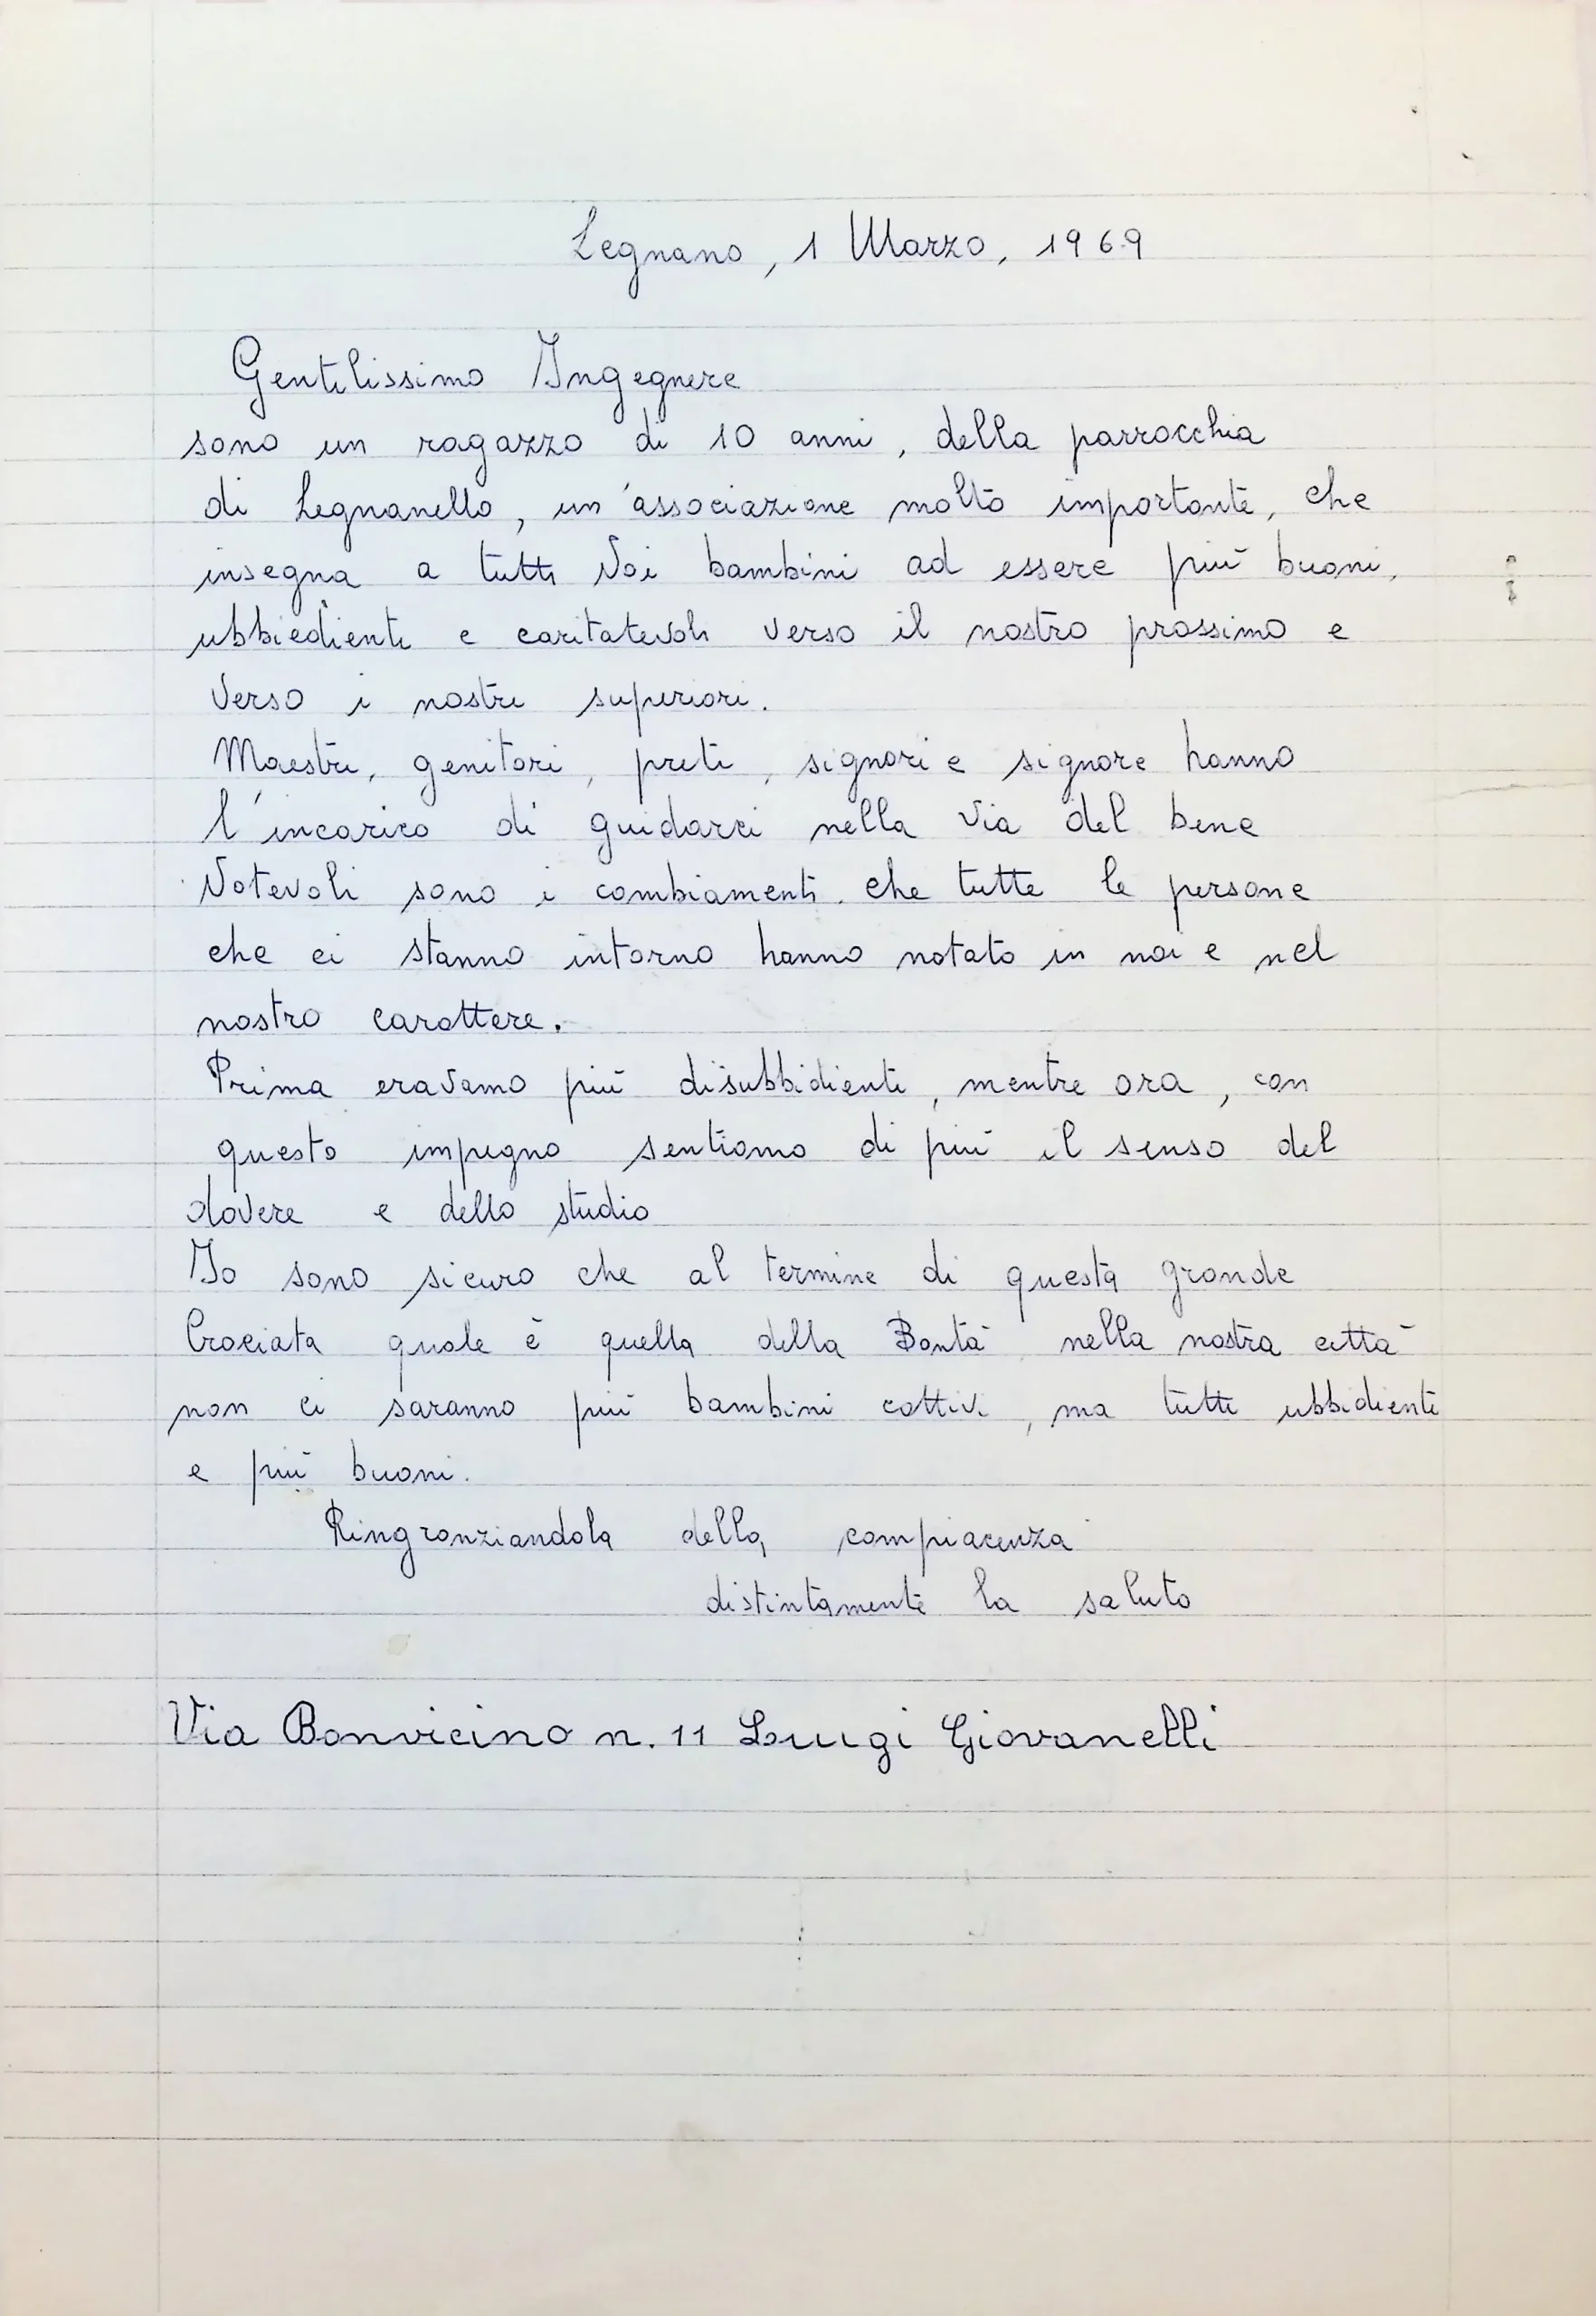 Legnano, 1 Marzo, 1969
Gentilissimo Ingegnere
sono un ragazzo di 10 anni, della parrocchia
di Legnanello, un'associazione molto importante, che
insegna a tutti Noi bambini ad essere più buoni,
ubbiedienti e caritatevoli verso il nostro prossimo e
verso i nostri superiori.
Maestri, genitori, preti, signori e signore hanno
l'incarico di guidarci nella via del bene
Notevoli sono i cambiamenti, che tutte le persone
che ci stanno intorno hanno notato in noi e nel
nostro carattere.
Prima eravamo più disubbidienti, mentre ora, con
questo impegno sentiamo di più il senso del
dovere e dello studio
Io sono sicuro che al termine di questa grande
Crociata quale è quella della Bontà nella nostra città
non ci saranno più bambini cattivi, ma tutti ubbidienti
e più buoni.
Ringranziandola della compiacenza
distintamente la saluto
Via Bonvicino n. 11 Luigi Giovanelli